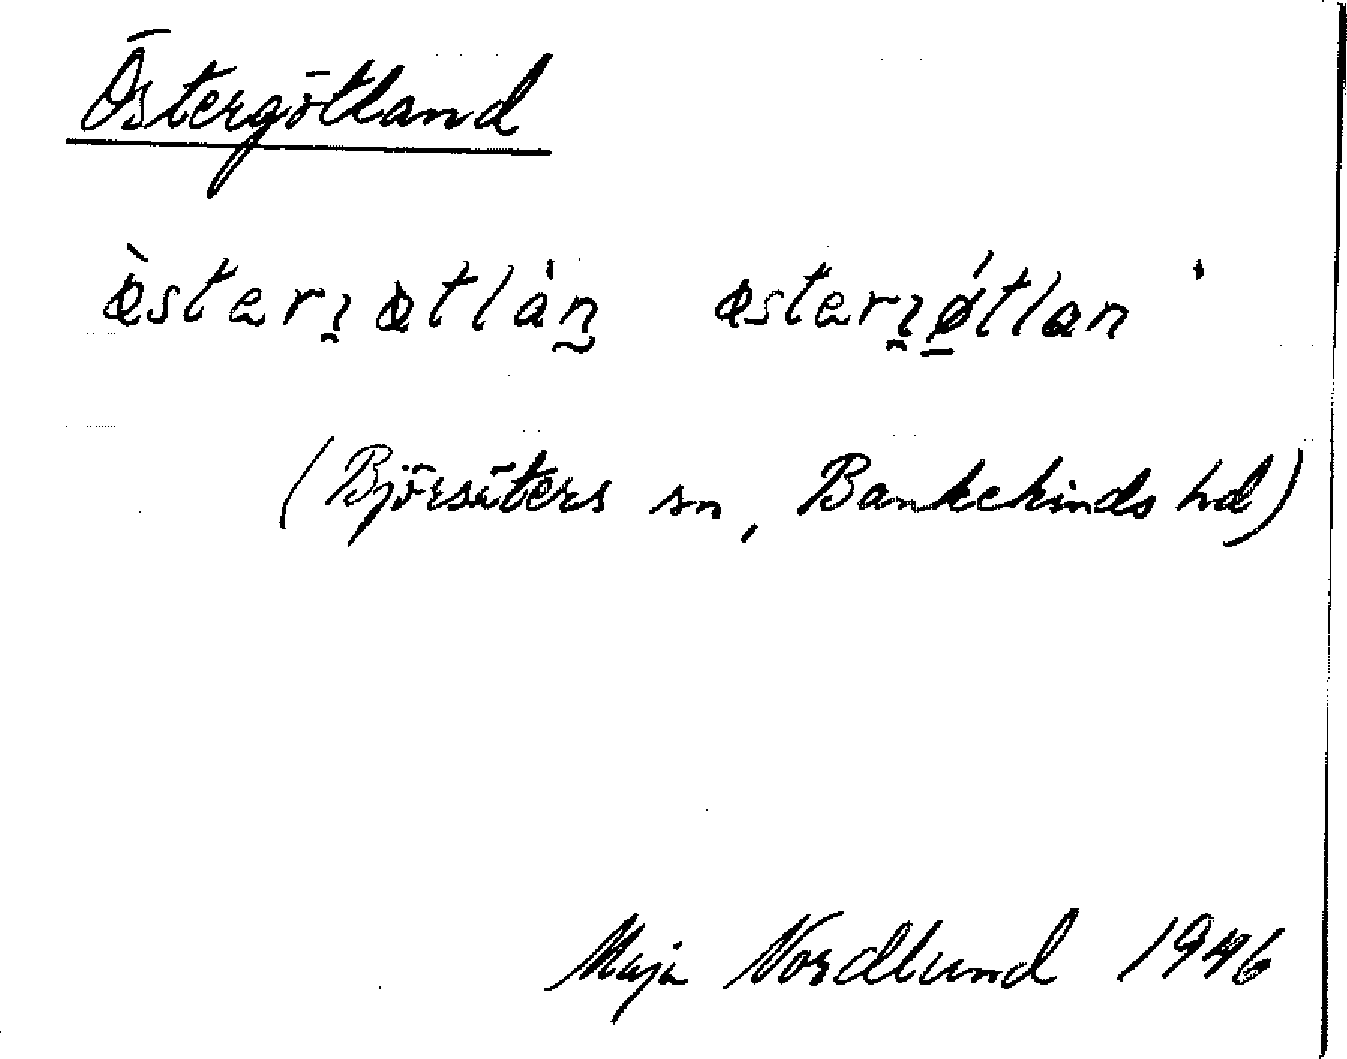 Östergötland
æ̀sterɿ̰ætlàn̰ æsterɿ̰ǿ̲tlan
(Björsäters sn, Bankekinds hd)
Maja Nordlund 1946